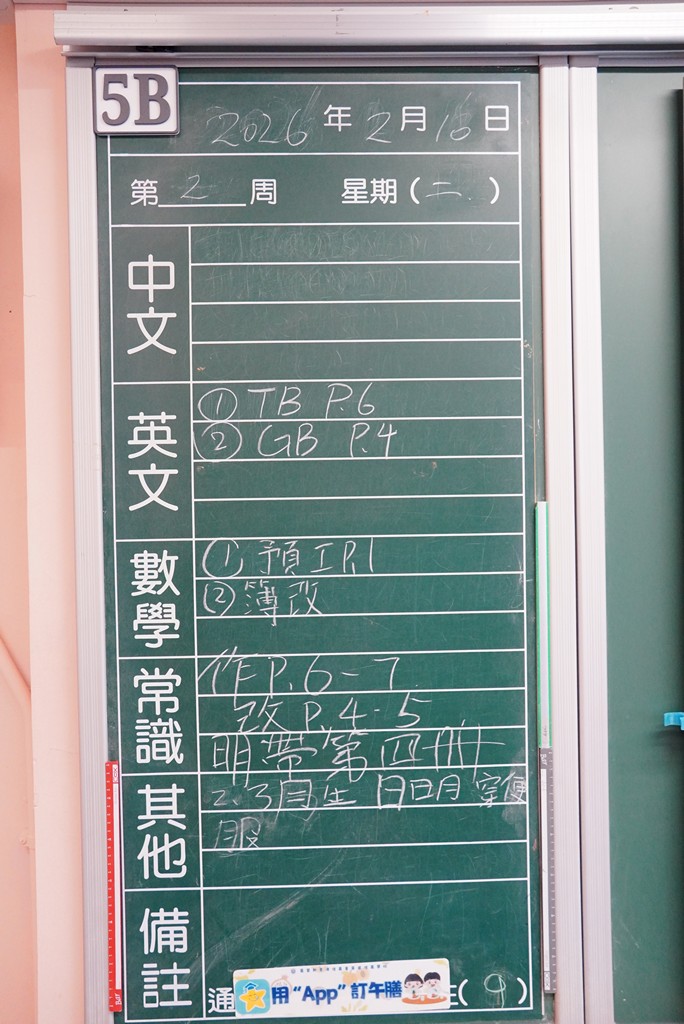 5B
2026年2月16日
第2周 星期(二)
中文
英文
① TB P.6
② GB P.4
數學
① 預工P.1
② 簿改
常識
作P.6-7
改P.4-5
明帶第四冊
其他
2、3月生日日月穿便
服
備註
通
用“App”訂午膳
(9)